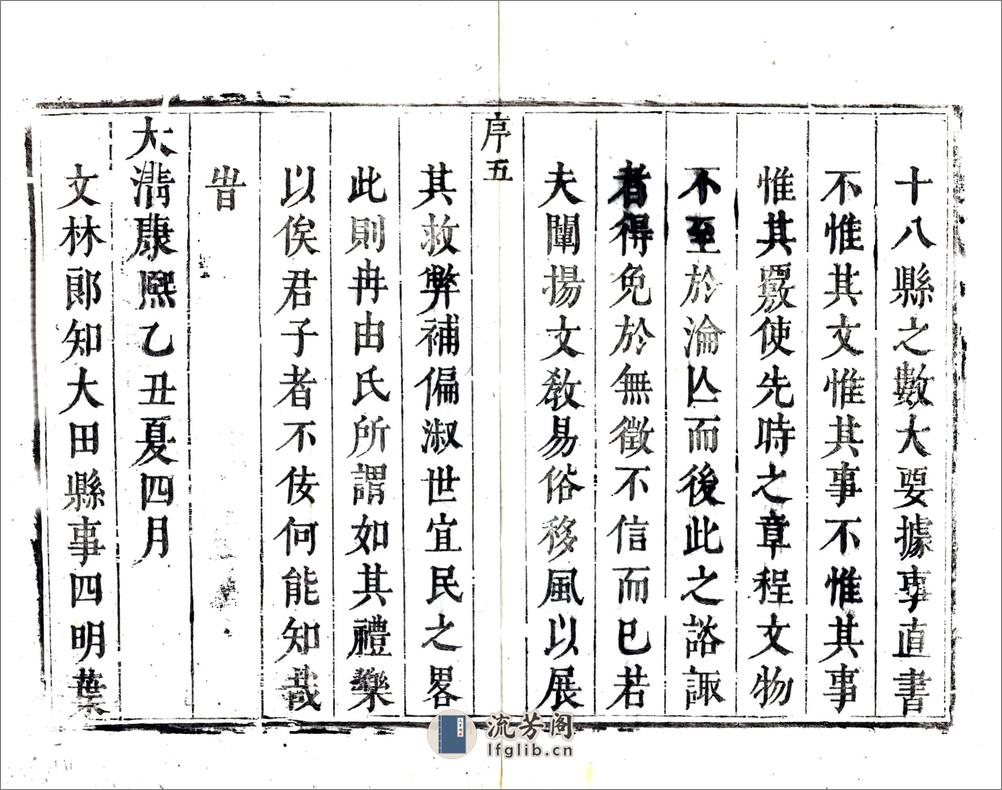 十八縣之數大要據事直書
不惟其文惟其事不惟其事
惟其覈使先時之章程文物
不至於淪亾而後此之諮諏
者得免於無徵不信而已若
夫闡揚文教易俗移風以展
序五
其救弊補偏淑世宜民之畧
此則冉由氏所謂如其禮樂
以俟君子者不佞何能知哉
旹
大清康熙乙丑夏四月
文林郎知大田縣事四明葉
流芳阁
lfglib.cn